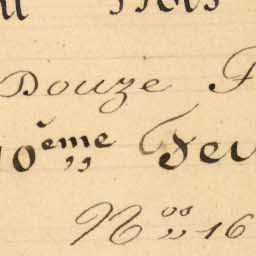 Douze F
10ème Feu
Nos 16